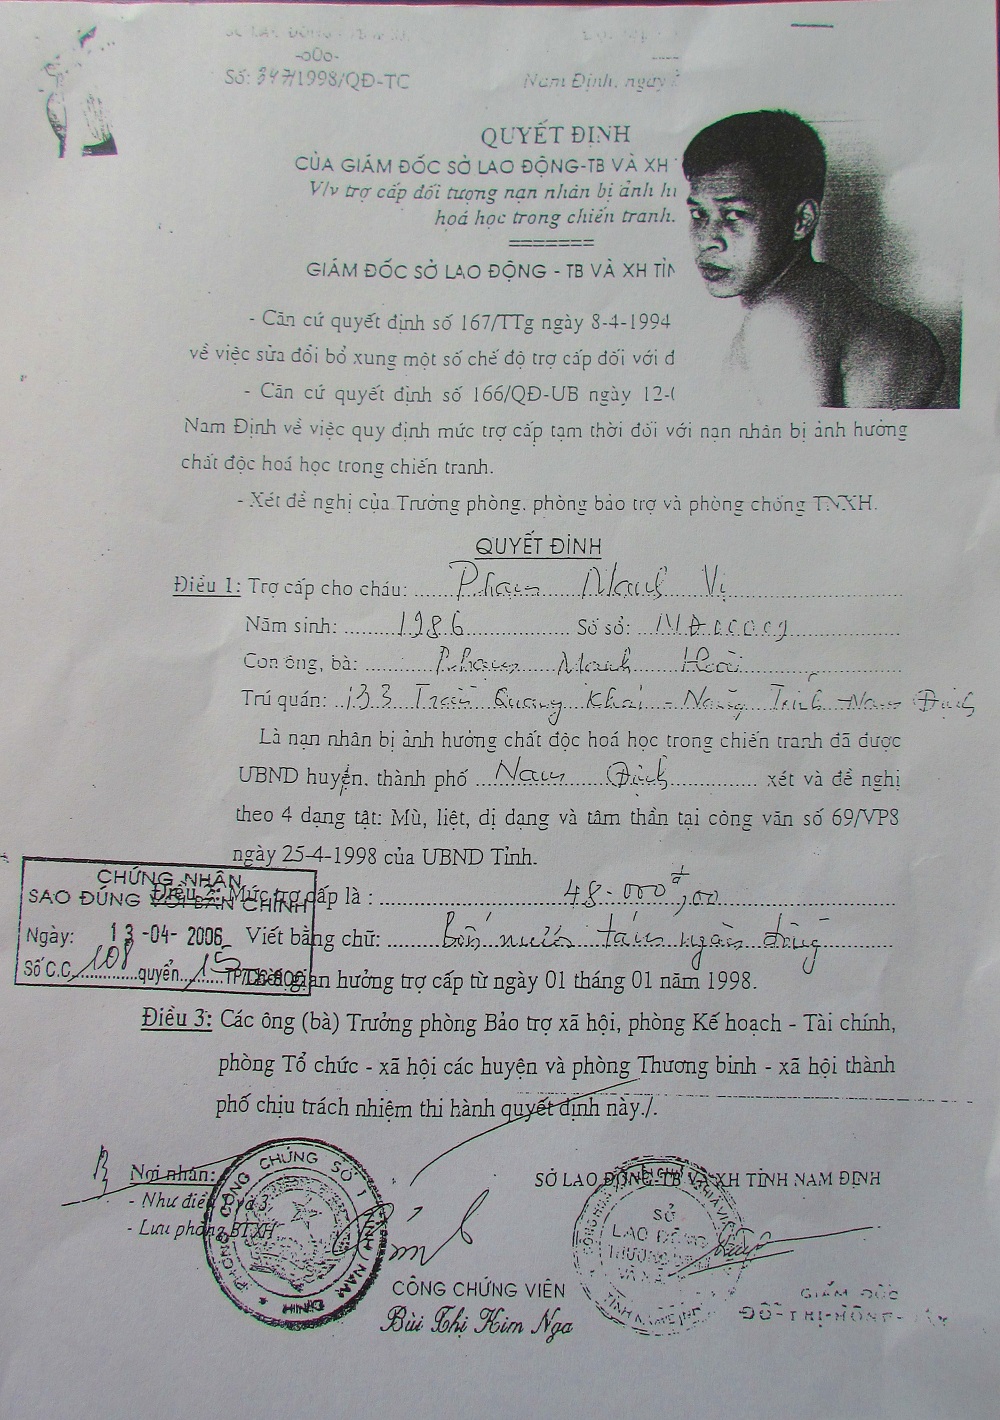 -oOo-
Số: 347/1998/QĐ-TC
Nam Định, ngày
QUYẾT ĐỊNH
CỦA GIÁM ĐỐC SỞ LAO ĐỘNG-TB VÀ XH
V/v trợ cấp đối tượng nạn nhân bị ảnh hư
hoá học trong chiến tranh.
=======
GIÁM ĐỐC SỞ LAO ĐỘNG - TB VÀ XH TỈN
- Căn cứ quyết định số 167/TTg ngày 8-4-1994
về việc sửa đổi bổ xung một số chế độ trợ cấp đối với đ
- Căn cứ quyết định số 166/QĐ-UB ngày 12-
Nam Định về việc quy định mức trợ cấp tạm thời đối với nạn nhân bị ảnh hưởng
chất độc hoá học trong chiến tranh.
- Xét đề nghị của Trưởng phòng, phòng bảo trợ và phòng chống TNXH.
QUYẾT ĐỊNH
Điều 1: Trợ cấp cho cháu: Phạm Mạnh Vị
Năm sinh: 1986 Số sổ:
Con ông, bà: Phạm Mạnh
Trú quán: 133 Trần Quang Khải - Năng Tĩnh - Nam Định
Là nạn nhân bị ảnh hưởng chất độc hoá học trong chiến tranh đã được
UBND huyện, thành phố Nam Định xét và đề nghị
theo 4 dạng tật: Mù, liệt, dị dạng và tâm thần tại công văn số 69/VP8
ngày 25-4-1998 của UBND Tỉnh.
CHỨNG NHẬN
SAO ĐÚNG VỚI BẢN CHÍNH
Ngày: 13-04-2006
Số C.C 108 quyển 15
Điều 2: Mức trợ cấp là : 48.000đ,00
Viết bằng chữ: Bốn mươi tám ngàn đồng
Thời gian hưởng trợ cấp từ ngày 01 tháng 01 năm 1998.
Điều 3: Các ông (bà) Trưởng phòng Bảo trợ xã hội, phòng Kế hoạch - Tài chính,
phòng Tổ chức - xã hội các huyện và phòng Thương binh - xã hội thành
phố chịu trách nhiệm thi hành quyết định này./.
Nơi nhận:
- Như điều 1 và 3
- Lưu phòng BTXH
PHÒNG CÔNG CHỨNG SỐ 1 TỈNH NAM ĐỊNH
CÔNG CHỨNG VIÊN
Bùi Thị Kim Nga
SỞ LAO ĐỘNG-TB VÀ XH TỈNH NAM ĐỊNH
SỞ
LAO ĐỘNG
THƯƠNG BINH
VÀ XÃ
GIÁM ĐỐC
ĐỖ THỊ HỒNG